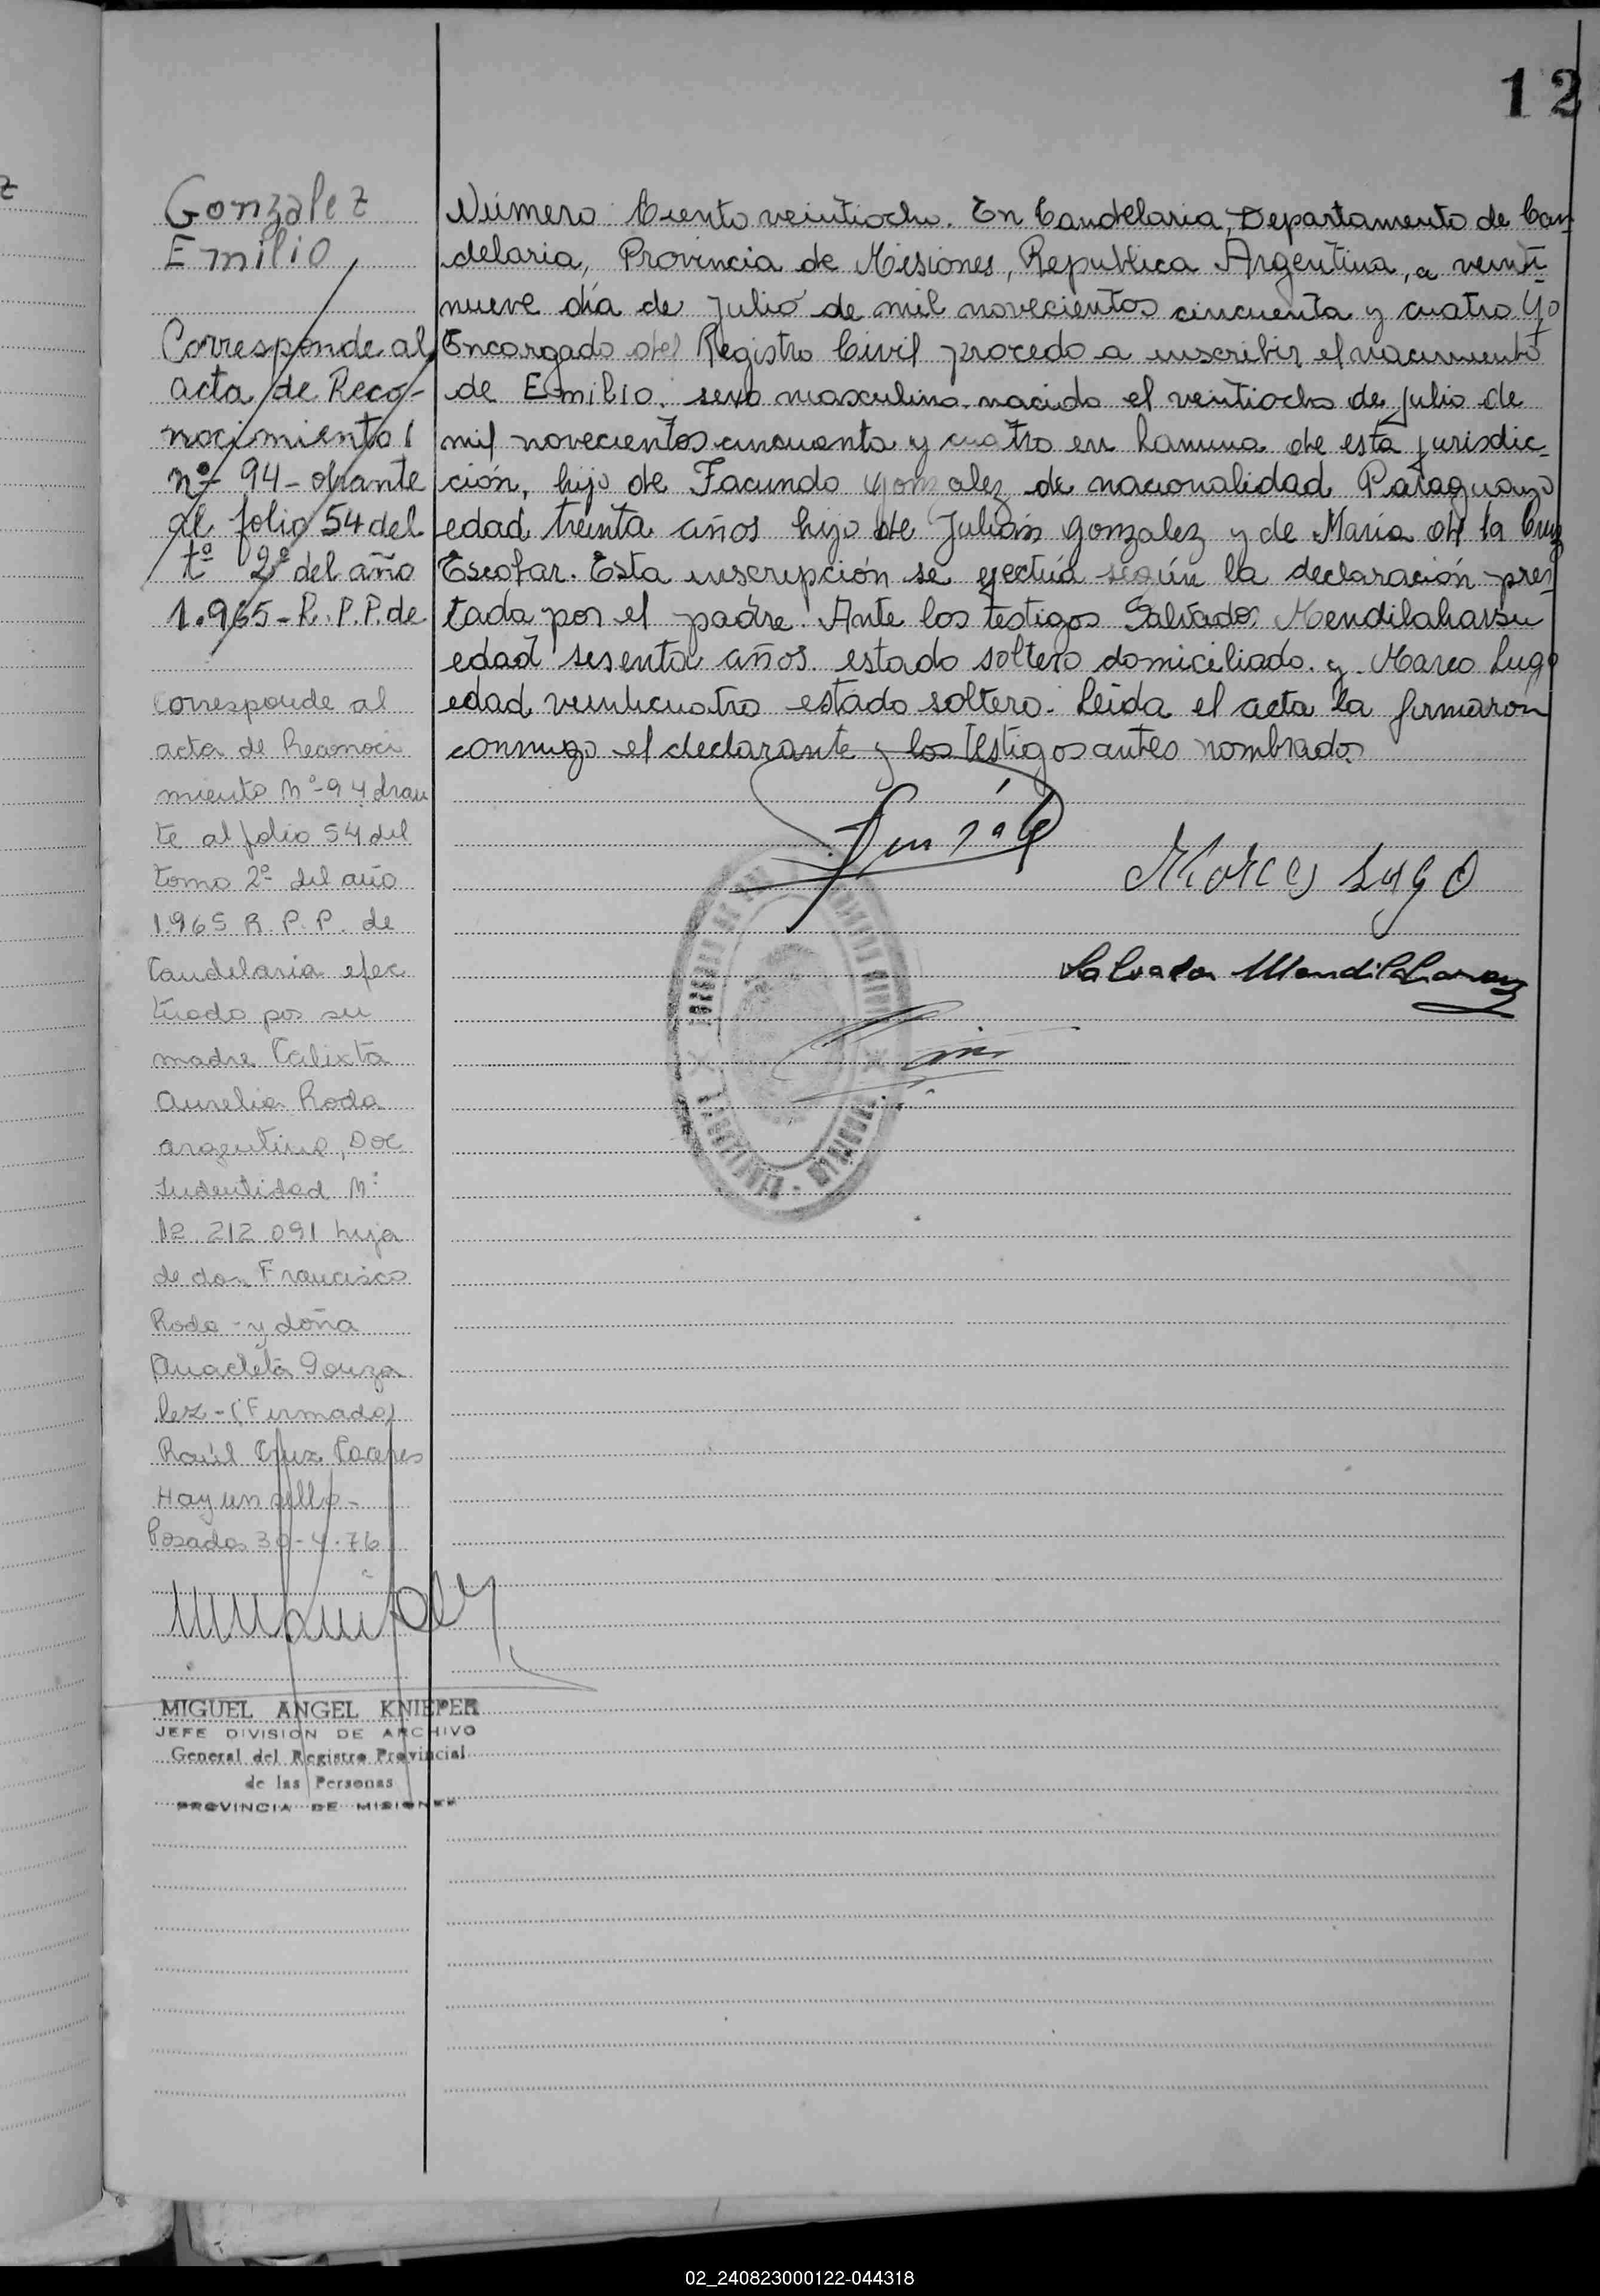 12
Gonzalez
Emilio
Corresponde al
acta de Reco-
nocimiento
nº 94 - obrante
al folio 54 del
tº 2º del año
1.965 - R. P. P. de
Corresponde al
acta de Reconoci
miento Nº 94 obran
te al folio 54 del
tomo 2º del año
1.965 R. P. P. de
Candelaria efec
tuado por su
madre Calixta
Aurelia Roda
argentina, Doc
Indentidad Nº
12.212.091 hija
de don Francisco
Roda - y doña
Anacleta Gonza
lez - (Firmado)
Raúl Cruz Caceres
Hay un sello -
Posadas 30-4-76
MIGUEL ANGEL KNIEPER
JEFE DIVISION DE ARCHIVO
General del Registro Provincial
de las Personas
PROVINCIA DE MISIONES
Número Ciento veintiocho. En Candelaria, Departamento de Can-
delaria, Provincia de Misiones, Republica Argentina, a veinti-
nueve día de Julio de mil novecientos cincuenta y cuatro Yo
Encargado del Registro Civil procedo a inscribir el nacimiento
de Emilio. sexo masculino. nacido el veintiocho de Julio de
mil novecientos cincuenta y cuatro en de esta jurisdic-
ción, hijo de Facundo Gonzalez de nacionalidad Paraguayo
edad treinta años hijo de Julián Gonzalez y de María de la Cruz
Escobar. Esta inscripción se efectúa según la declaración pres-
tada por el padre. Ante los testigos Salvador Mendilaharsu
edad sesenta años. estado soltero domiciliado. y Marco Lugo
edad veinticuatro estado soltero. Leida el acta la firmaron
conmigo el declarante y los testigos antes nombrados.
Marcos Lugo
Salvador Mendilaharsu
02_240823000122-044318